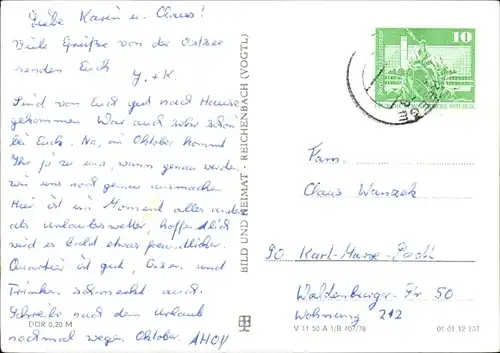 Liebe Karin u. Claus!
Viele Grüße von der Ostsee
senden Euch
J. + K.
Sind von Euch gut nach Hause
gekommen War auch sehr schön
bei Euch. Na, im Oktober kommt
Ihr ja zu uns, wann genau werden
wir uns noch genau ausmachen
Hier ist im Moment alles andere
als Urlaubswetter, hoffentlich
wird es bald etwas freundlicher.
Quartier ist gut, Essen und
Trinken schmeckt auch.
Schreibe nach dem Urlaub
nochmal wegen Oktober. AHOI
DDR 0,20 M
BILD UND HEIMAT · REICHENBACH (VOGTL)
10
Fam.
Claus Wanzek
90 Karl-Marx-Stadt
Waldenburger Str 50
Wohnung 212
V 11 50 A 1/B 407/78
01 01 12 102